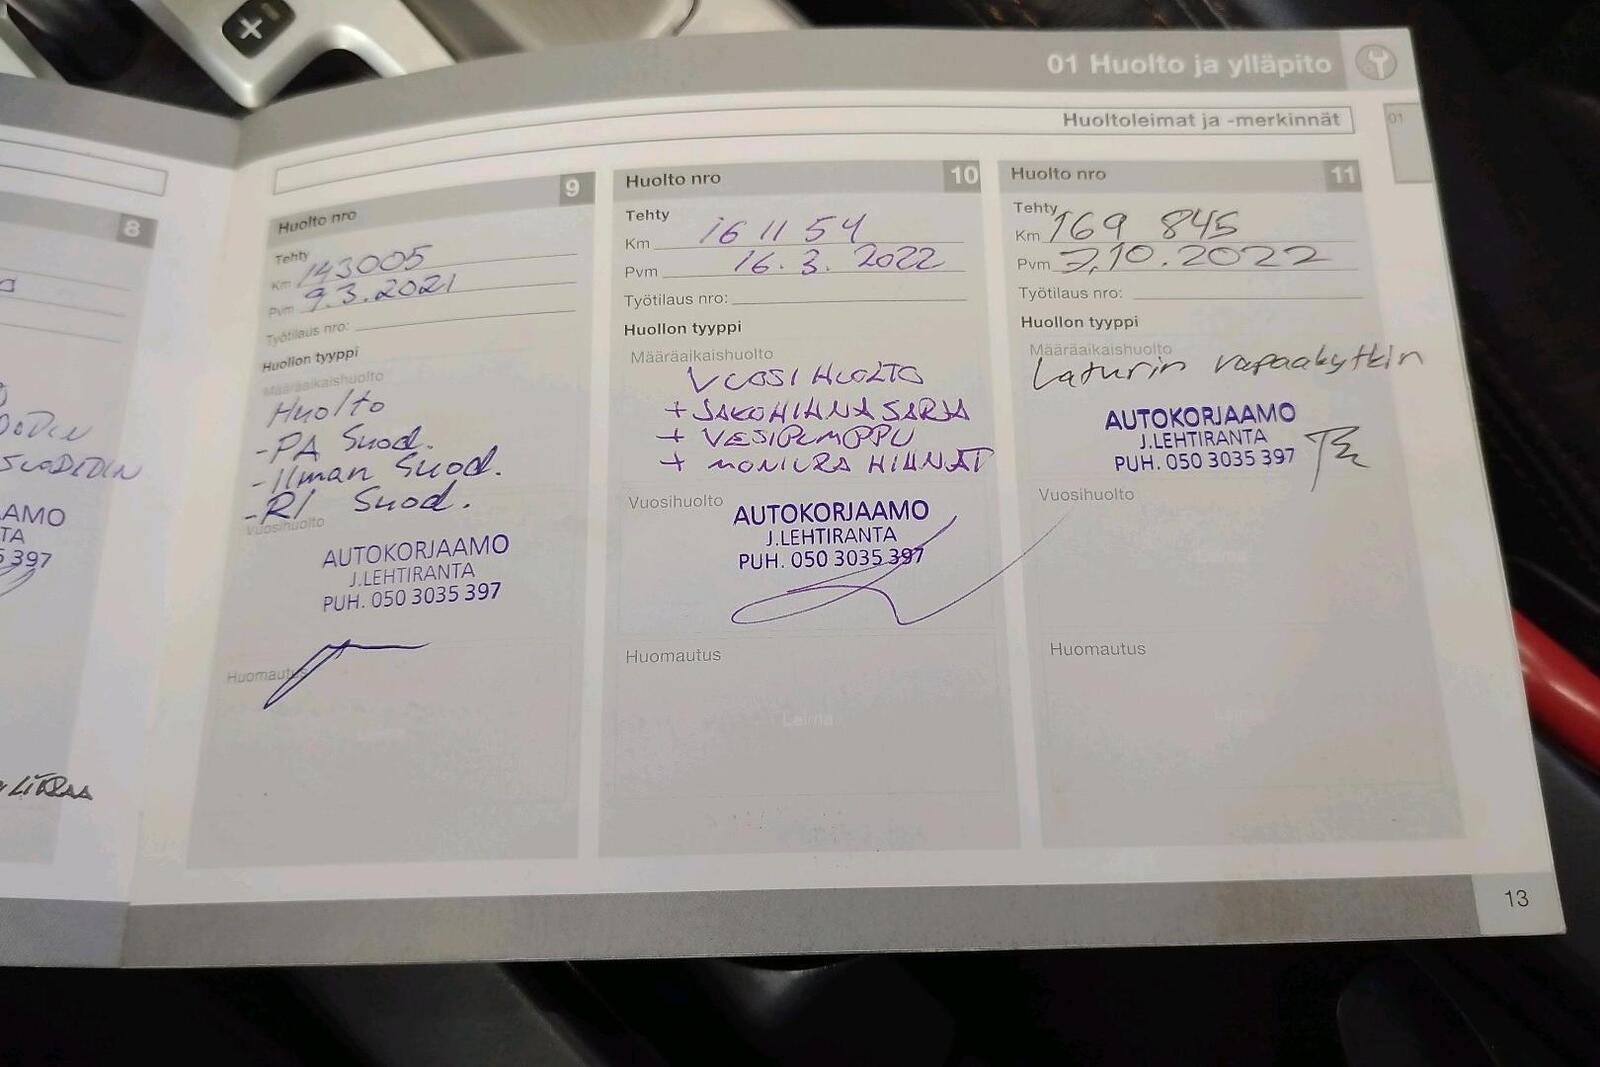 01 Huolto ja ylläpito
Huoltoleimat ja -merkinnät
01
8
SUODATIN
AMO
TA
5 397
Huolto nro 9
Tehty
Km 143005
Pvm 9.3.2021
Työtilaus nro:
Huollon tyyppi
Määräaikaishuolto
Huolto
-PA Suod.
-Ilman Suod.
-RI Suod.
Vuosihuolto
AUTOKORJAAMO
J.LEHTIRANTA
PUH. 050 3035 397
Huomautus
Huolto nro 10
Tehty
Km 161154
Pvm 16.3.2022
Työtilaus nro:
Huollon tyyppi
Määräaikaishuolto
VUOSIHUOLTO
+ JAKOHIHNASARJA
+ VESIPUMPPU
+ MONIURA HIHNAT
Vuosihuolto
AUTOKORJAAMO
J.LEHTIRANTA
PUH. 050 3035 397
Huomautus
Leima
Huolto nro 11
Tehty
Km 169 845
Pvm 7.10.2022
Työtilaus nro:
Huollon tyyppi
Määräaikaishuolto
Laturin vapaakytkin
AUTOKORJAAMO
J.LEHTIRANTA
PUH. 050 3035 397
Vuosihuolto
Leima
Huomautus
Leima
13